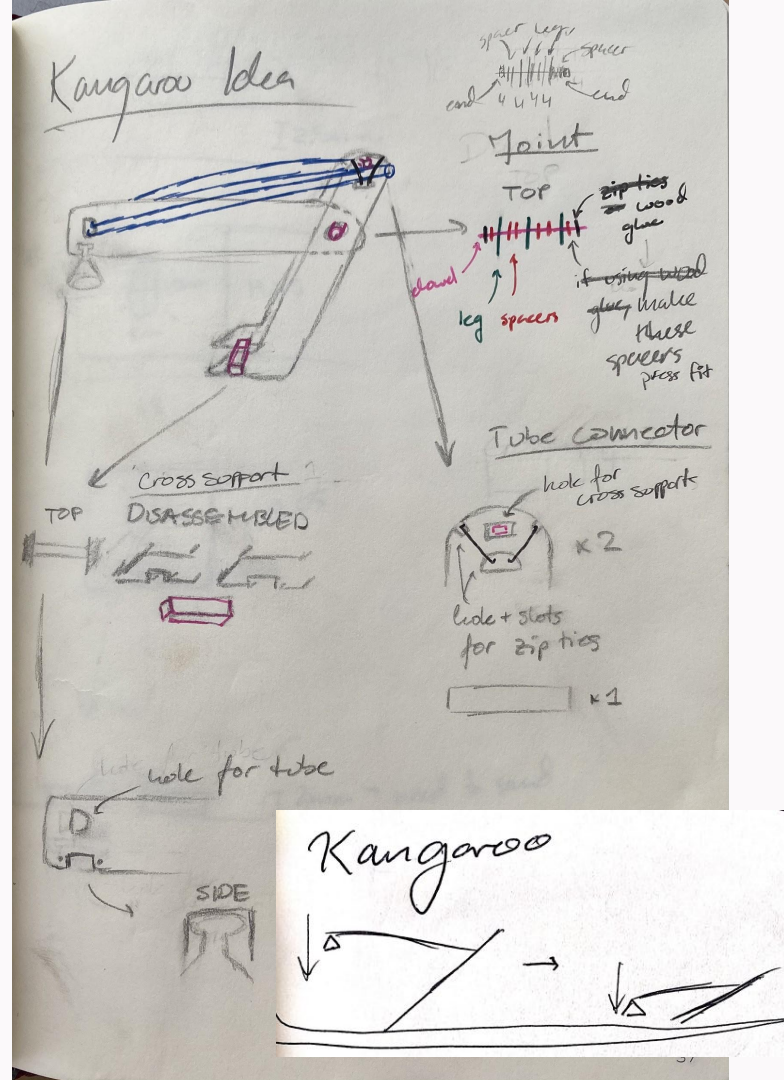 Kangaroo Idea
spacer legs
spacer
end
end
4 4 4 4
Joint
TOP
zip ties
wood
glue
dowel
leg
spacers
if using wood
glue, make
these
spacers
press fit
Tube Connector
hole for
cross supports
x2
hole + slots
for zip ties
x1
Cross support
TOP
DISASSEMBLED
hole for tube
SIDE
Kangaroo